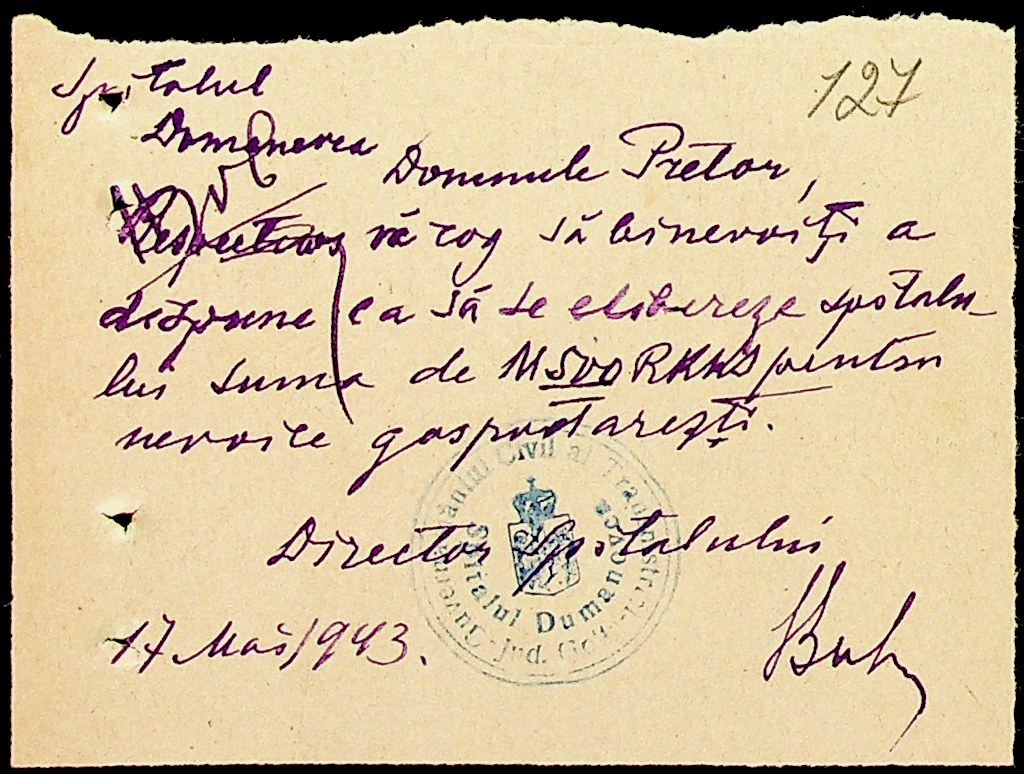 127
Spitalul
Domanevca
Domnule Pretor,
Respectuos vă rog să binevoiți a
dispune ca să se elibereze spitalu-
lui suma de 500 RKKS pentru
nevoile gospodărești.
Director Spitalului
17 Mai 1943.
Guvernământul Civil al Transnistriei
Jud. Golta
Spitalul Dumanovca